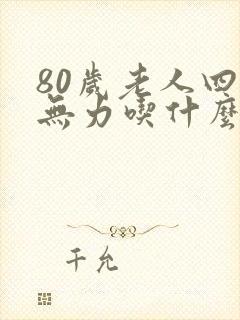 80歲老人四
無力喫什麼
千允